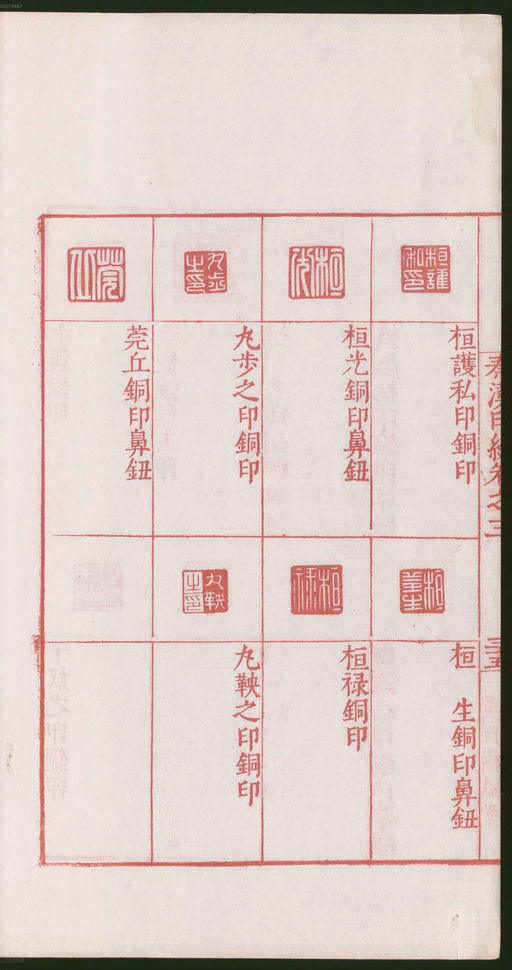 桓護私印銅印
桓光銅印鼻鈕
丸歩之印銅印
莞丘銅印鼻鈕
桓 生銅印鼻鈕
桓禄銅印
丸鞅之印銅印